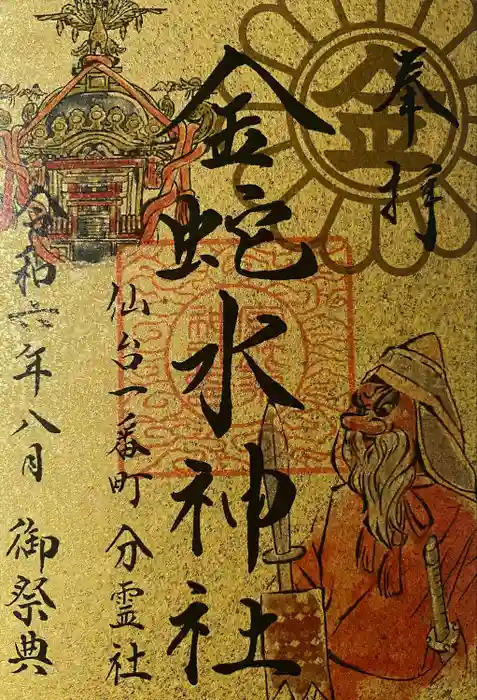 奉拝
金
金蛇水神社
仙台一番町分霊社
令和六年八月 御祭典